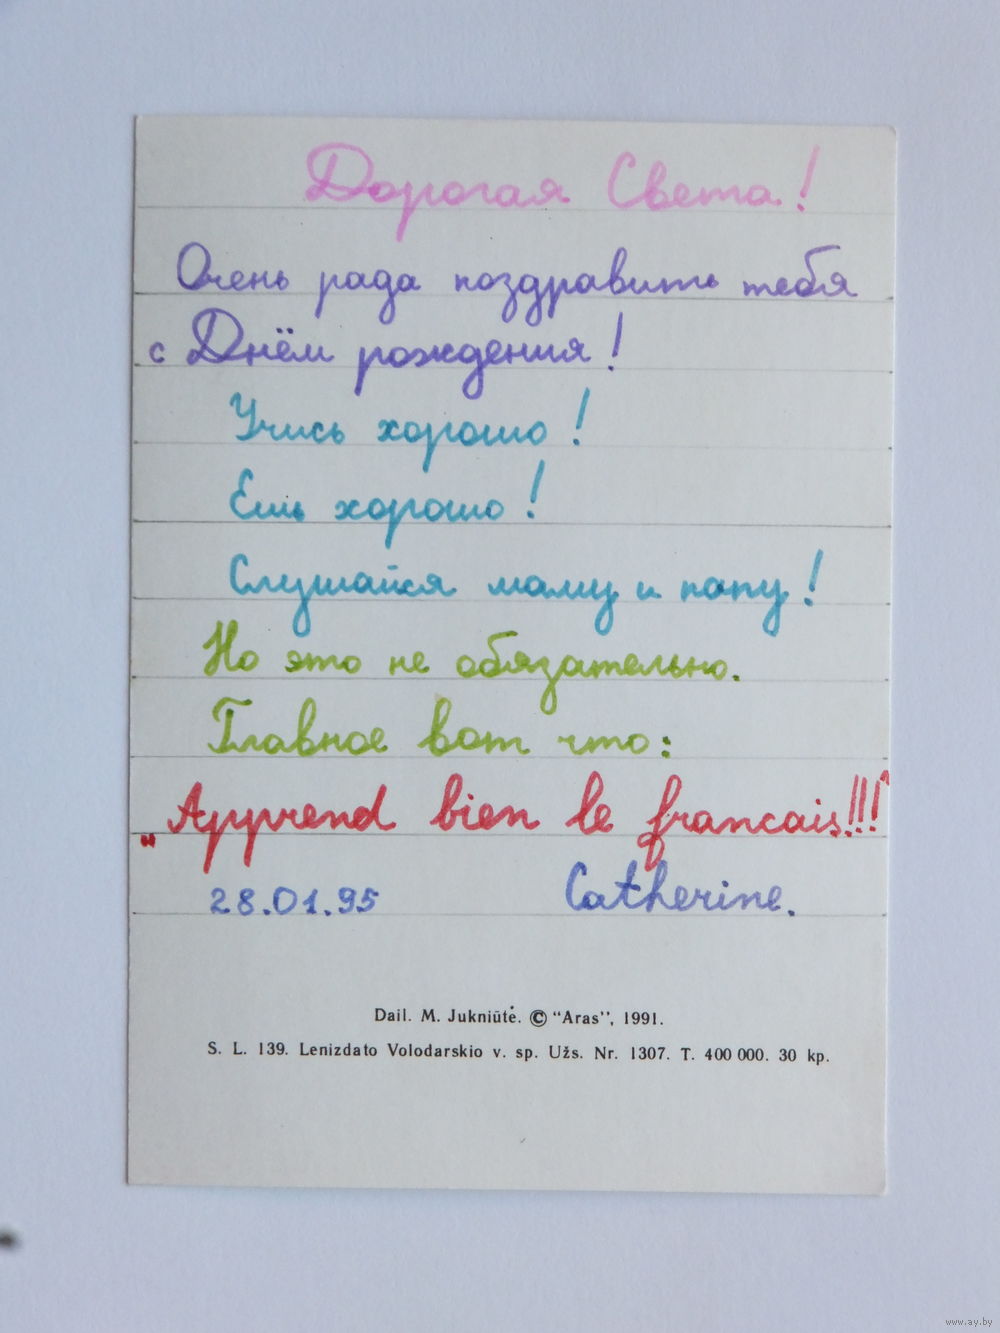 Дорогая Света!
Очень рада поздравить тебя
с Днём рождения!
Учись хорошо!
Ешь хорошо!
Слушайся маму и папу!
Но это не обязательно.
Главное вот что:
„Apprend bien le francais!!!"
28.01.95 Catherine.
Dail. M. Jukniūtė. © "Aras", 1991.
S. L. 139. Lenizdato Volodarskio v. sp. Užs. Nr. 1307. T. 400 000. 30 kp.
www.ay.by